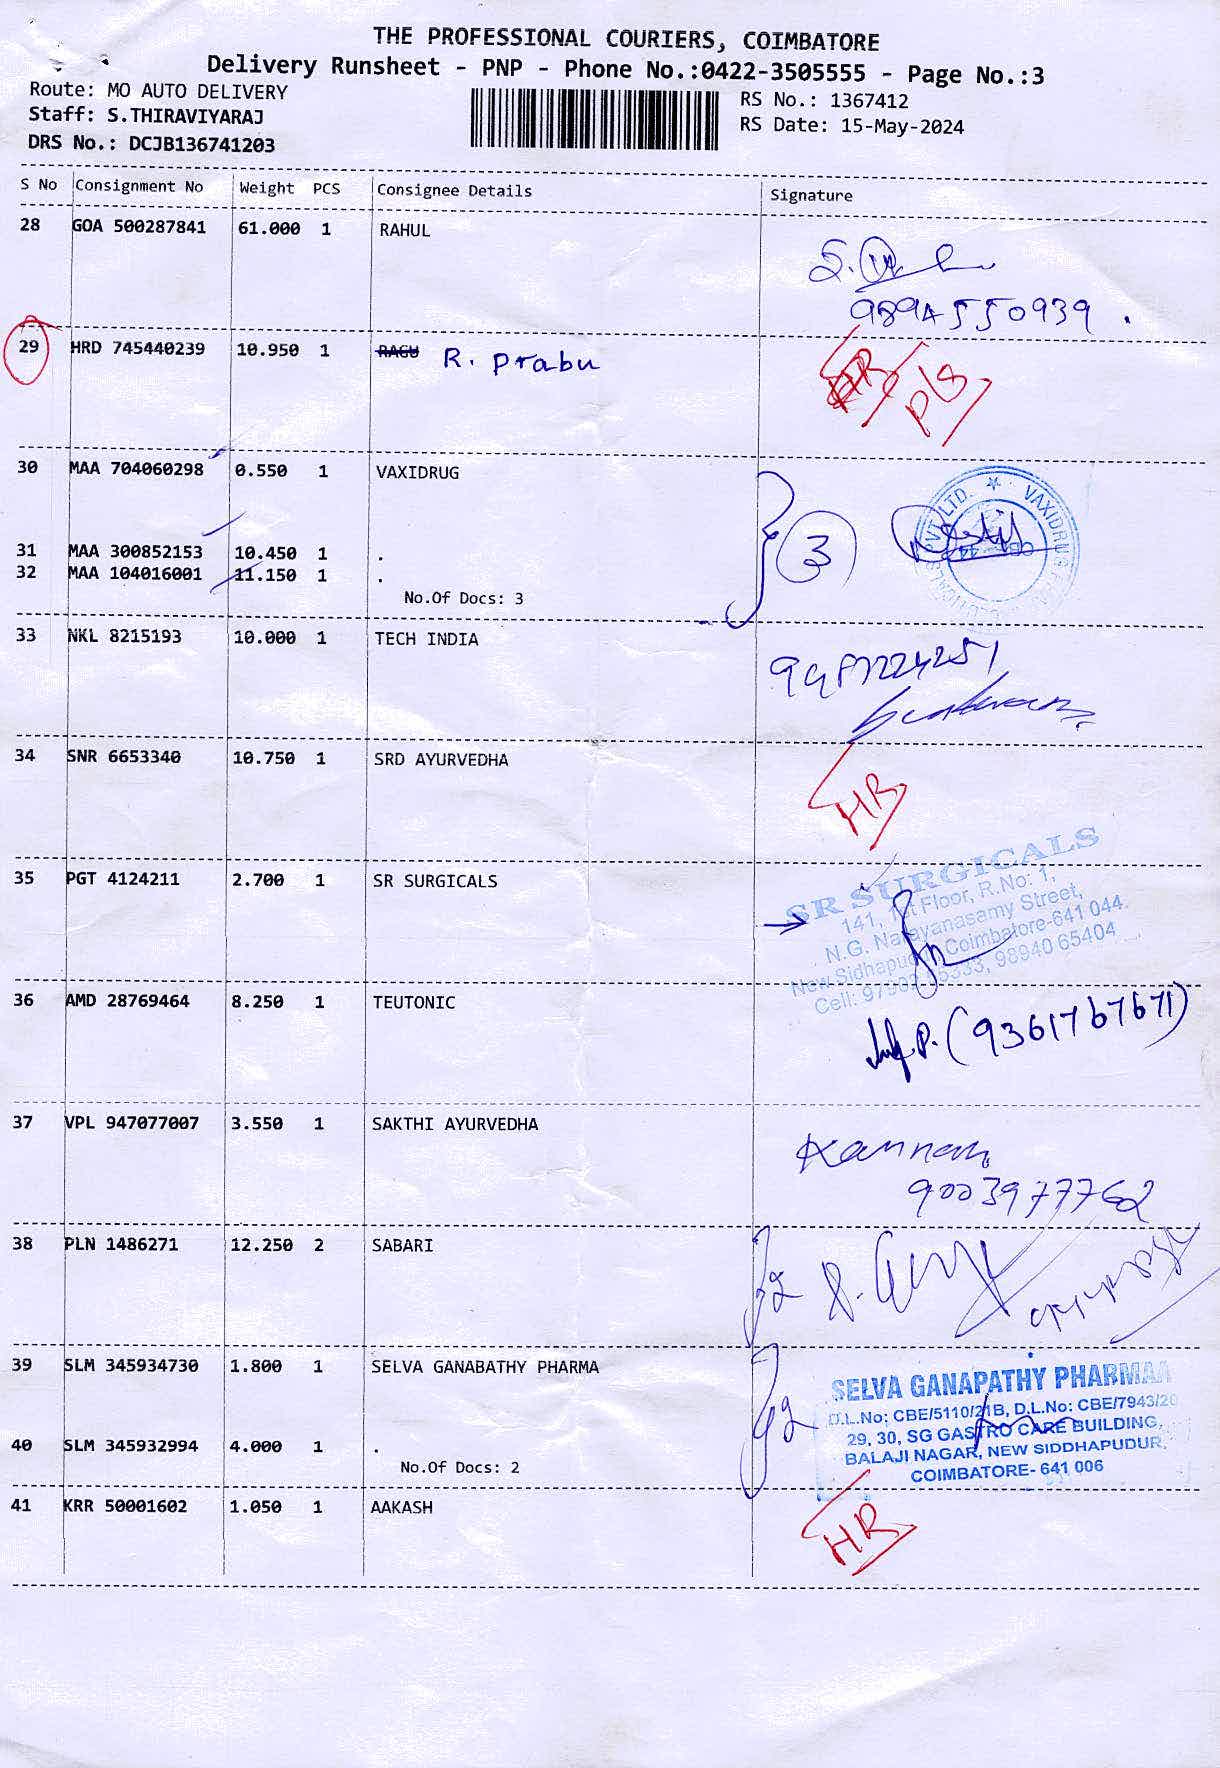 THE PROFESSIONAL COURIERS, COIMBATORE
Delivery Runsheet - PNP - Phone No.:0422-3505555 - Page No.:3
Route: MO AUTO DELIVERY
Staff: S.THIRAVIYARAJ
DRS No.: DCJB136741203
RS No.: 1367412
RS Date: 15-May-2024
S No Consignment No Weight PCS Consignee Details Signature
28 GOA 500287841 61.000 1 RAHUL
9894550939.
29 HRD 745440239 10.950 1 RAGU R. Prabu
HR P/S
30 MAA 704060298 0.550 1 VAXIDRUG
3
31 MAA 300852153 10.450 1 .
32 MAA 104016001 11.150 1 .
No.Of Docs: 3
33 NKL 8215193 10.000 1 TECH INDIA
34 SNR 6653340 10.750 1 SRD AYURVEDHA
HR
35 PGT 4124211 2.700 1 SR SURGICALS
SR SURGICALS
141, 1st Floor, R.No: 1,
N.G. Narayanasamy Street,
New Sidhapudur, Coimbatore-641 044.
Cell: 98940 65404
36 AMD 28769464 8.250 1 TEUTONIC
(9361767671)
37 VPL 947077007 3.550 1 SAKTHI AYURVEDHA
Kannan
9003977762
38 PLN 1486271 12.250 2 SABARI
39 SLM 345934730 1.800 1 SELVA GANABATHY PHARMA
SELVA GANAPATHY PHARMAA
D.L.No: CBE/5110/21B, D.L.No: CBE/7943/20
29, 30, SG GASTRO CARE BUILDING,
BALAJI NAGAR, NEW SIDDHAPUDUR,
COIMBATORE- 641 006
40 SLM 345932994 4.000 1 .
No.Of Docs: 2
41 KRR 50001602 1.050 1 AAKASH
HR